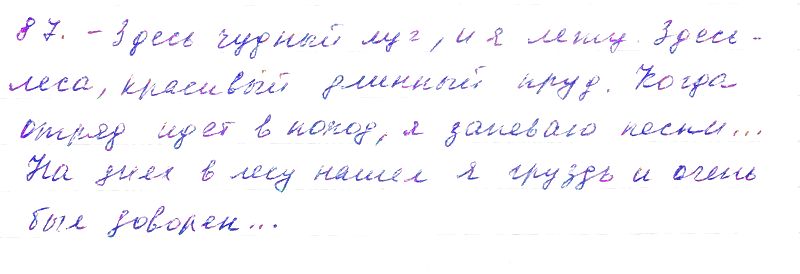 87. – Здесь чудный луг, и я лежу. Здесь –
леса, красивый длинный пруд. Когда
отряд идет в поход, я запеваю песни...
На днях в лесу нашел я груздь и очень
был доволен...